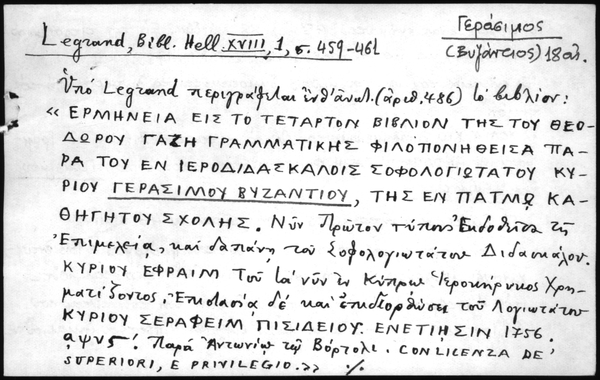 Γεράσιμος
(Βυζάντιος) 18 αἰ.
Legrand, Bibl. Hell. XVIII, 1, σ. 459-461
Ὑπό Legrand περιγράφεται ἐνθ' ἀνωτ. (ἀριθ. 486) τό βιβλίον:
« ΕΡΜΗΝΕΙΑ ΕΙΣ ΤΟ ΤΕΤΑΡΤΟΝ ΒΙΒΛΙΟΝ ΤΗΣ ΤΟΥ ΘΕΟ-
ΔΩΡΟΥ ΓΑΖΗ ΓΡΑΜΜΑΤΙΚΗΣ ΦΙΛΟΠΟΝΗΘΕΙΣΑ ΠΑ-
ΡΑ ΤΟΥ ΕΝ ΙΕΡΟΔΙΔΑΣΚΑΛΟΙΣ ΣΟΦΟΛΟΓΙΩΤΑΤΟΥ ΚΥ-
ΡΙΟΥ ΓΕΡΑΣΙΜΟΥ ΒΥΖΑΝΤΙΟΥ, ΤΗΣ ΕΝ ΠΑΤΜῼ ΚΑ-
ΘΗΓΗΤΟΥ ΣΧΟΛΗΣ. Νῦν Πρῶτον τύποις Ἐκδοθεῖσα τῇ
Ἐπιμελείᾳ, καί δαπάνῃ τοῦ Σοφολογιωτάτου Διδασκάλου
ΚΥΡΙΟΥ ΕΦΡΑΙΜ Τοῦ τά νῦν ἐν Κύπρῳ Ἱεροκήρυκος Χρη-
ματίζοντος. Ἐπιστασίᾳ δέ καί ἐπιδιορθώσει τοῦ Λογιωτάτου
ΚΥΡΙΟΥ ΣΕΡΑΦΕΙΜ ΠΙΣΙΔΕΙΟΥ. ΕΝΕΤΙΗΣΙΝ 1756.
αψνς! Παρά Ἀντωνίῳ τῷ Βόρτολι. CON LICENZA DE'
SUPERIORI, E PRIVILEGIO.» %